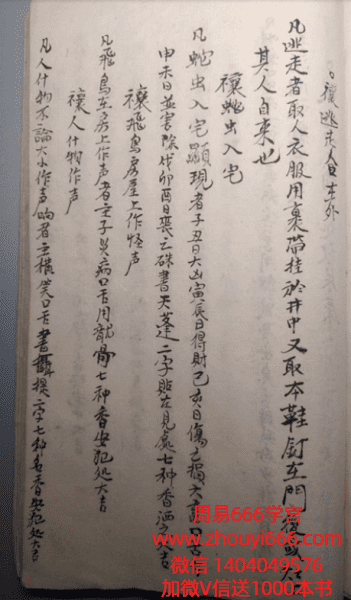 禳逃走人口在外
凡逃走者取人衣服用裹帶挂於井中又取本鞋釘在門
其人自来也
禳蛇虫入宅
凡蛇虫入宅顕現者子丑日大凶寅辰日得財巳亥日傷亡損大吉口舌
申未日並害除戌卯酉日喪亡硃書天蓬二字貼在見處七種香洒之大吉
禳飛鳥房屋上作怪声
凡飛鳥在房上作声者主子災病口舌用龍骨七种香安犯处大吉
禳人什物作声
凡人什物不論大小作声响者主横災口舌書二字七种名香安犯处大吉
周易666学宫
www.zhouyi666.com
微信 1404049576
加微V信送1000本书